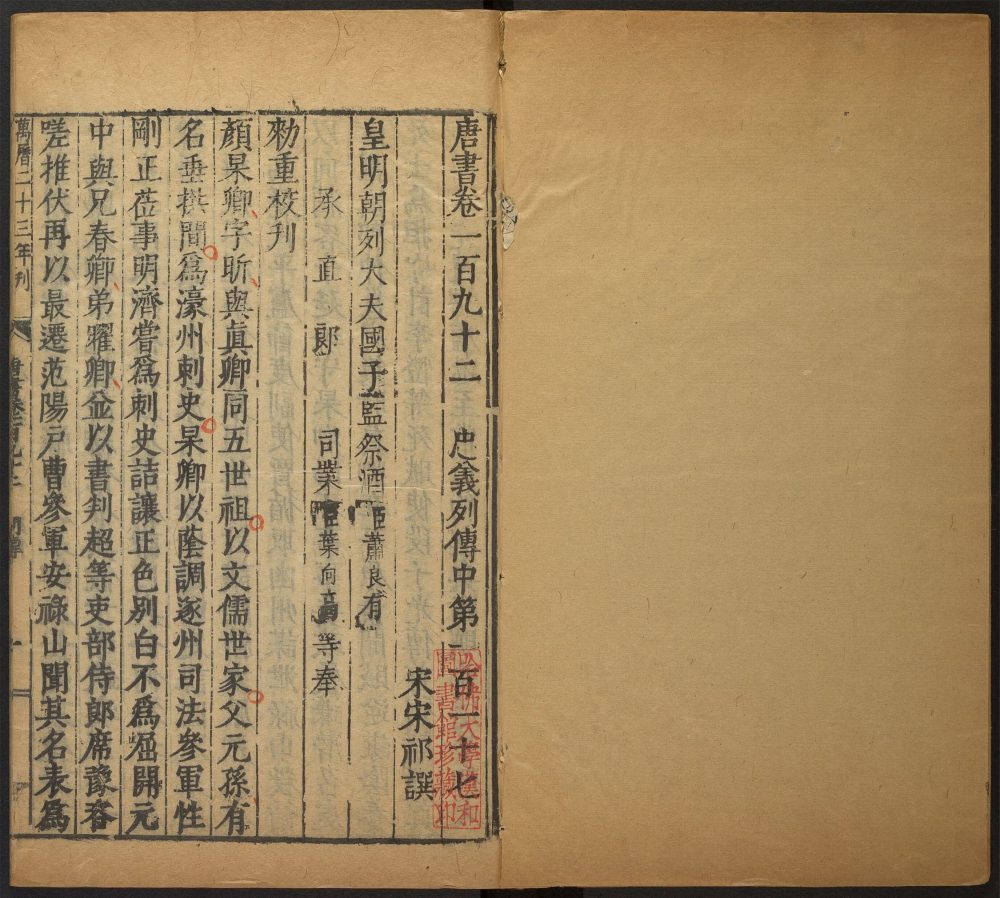 唐書卷一百九十二　忠義列傳中第一百一十七
宋宋祁譔
皇明朝列大夫國子監祭酒臣蕭良有
承直郎　司業臣葉向高等奉
勑重校刊
顏杲卿字昕與真卿同五世祖以文儒世家父元孫有
名垂拱間爲濠州刺史杲卿以蔭調遂州司法參軍性
剛正莅事明濟嘗爲刺史詰讓正色别白不爲屈開元
中與兄春卿弟曜卿並以書判超等吏部侍郎席豫咨
嗟推伏再以最遷范陽戶曹參軍安祿山聞其名表爲
萬曆二十三年刊
唐書卷一百九十二
一
哈佛大學漢和
圖書館珍藏印